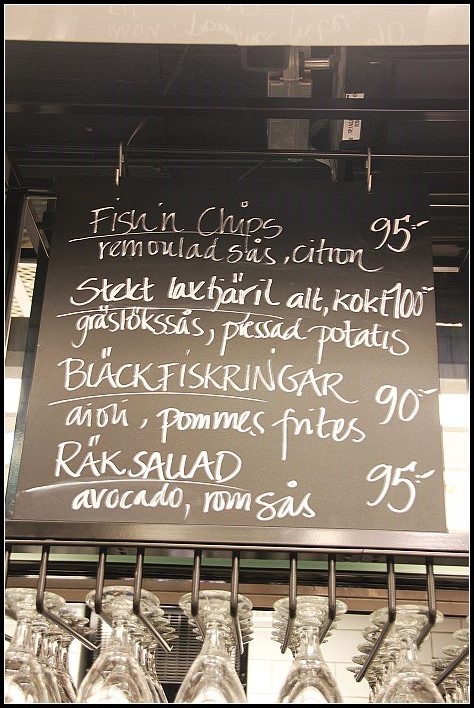 Fish'n Chips 95:-
remouladsås, citron
Stekt laxfjäril alt, kokt 100:-
gräslökssås, pressad potatis
BLÄCKFISKRINGAR
aioli, pommes frites 90:-
RÄKSALLAD
avocado, romsås 95:-